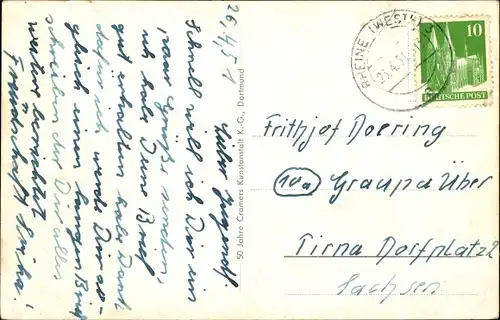 26.4.51
Lieber Jugendf
Schnell will ich Dir ein
paar Grüße senden,
ich habe Deine Brief
gut erhalten habe Dank
dafür ich werde Dir
gleich einen langen Brief
schreiben der Dir alles
weitere berichtet
Freundschaft
50 Jahre Cramers Kunstanstalt K.-G., Dortmund
RHEINE (WESTF)
10
DEUTSCHE POST
Frithjof Doering
10a Graupa Über
Pirna Dorfplatz 2
Sachsen